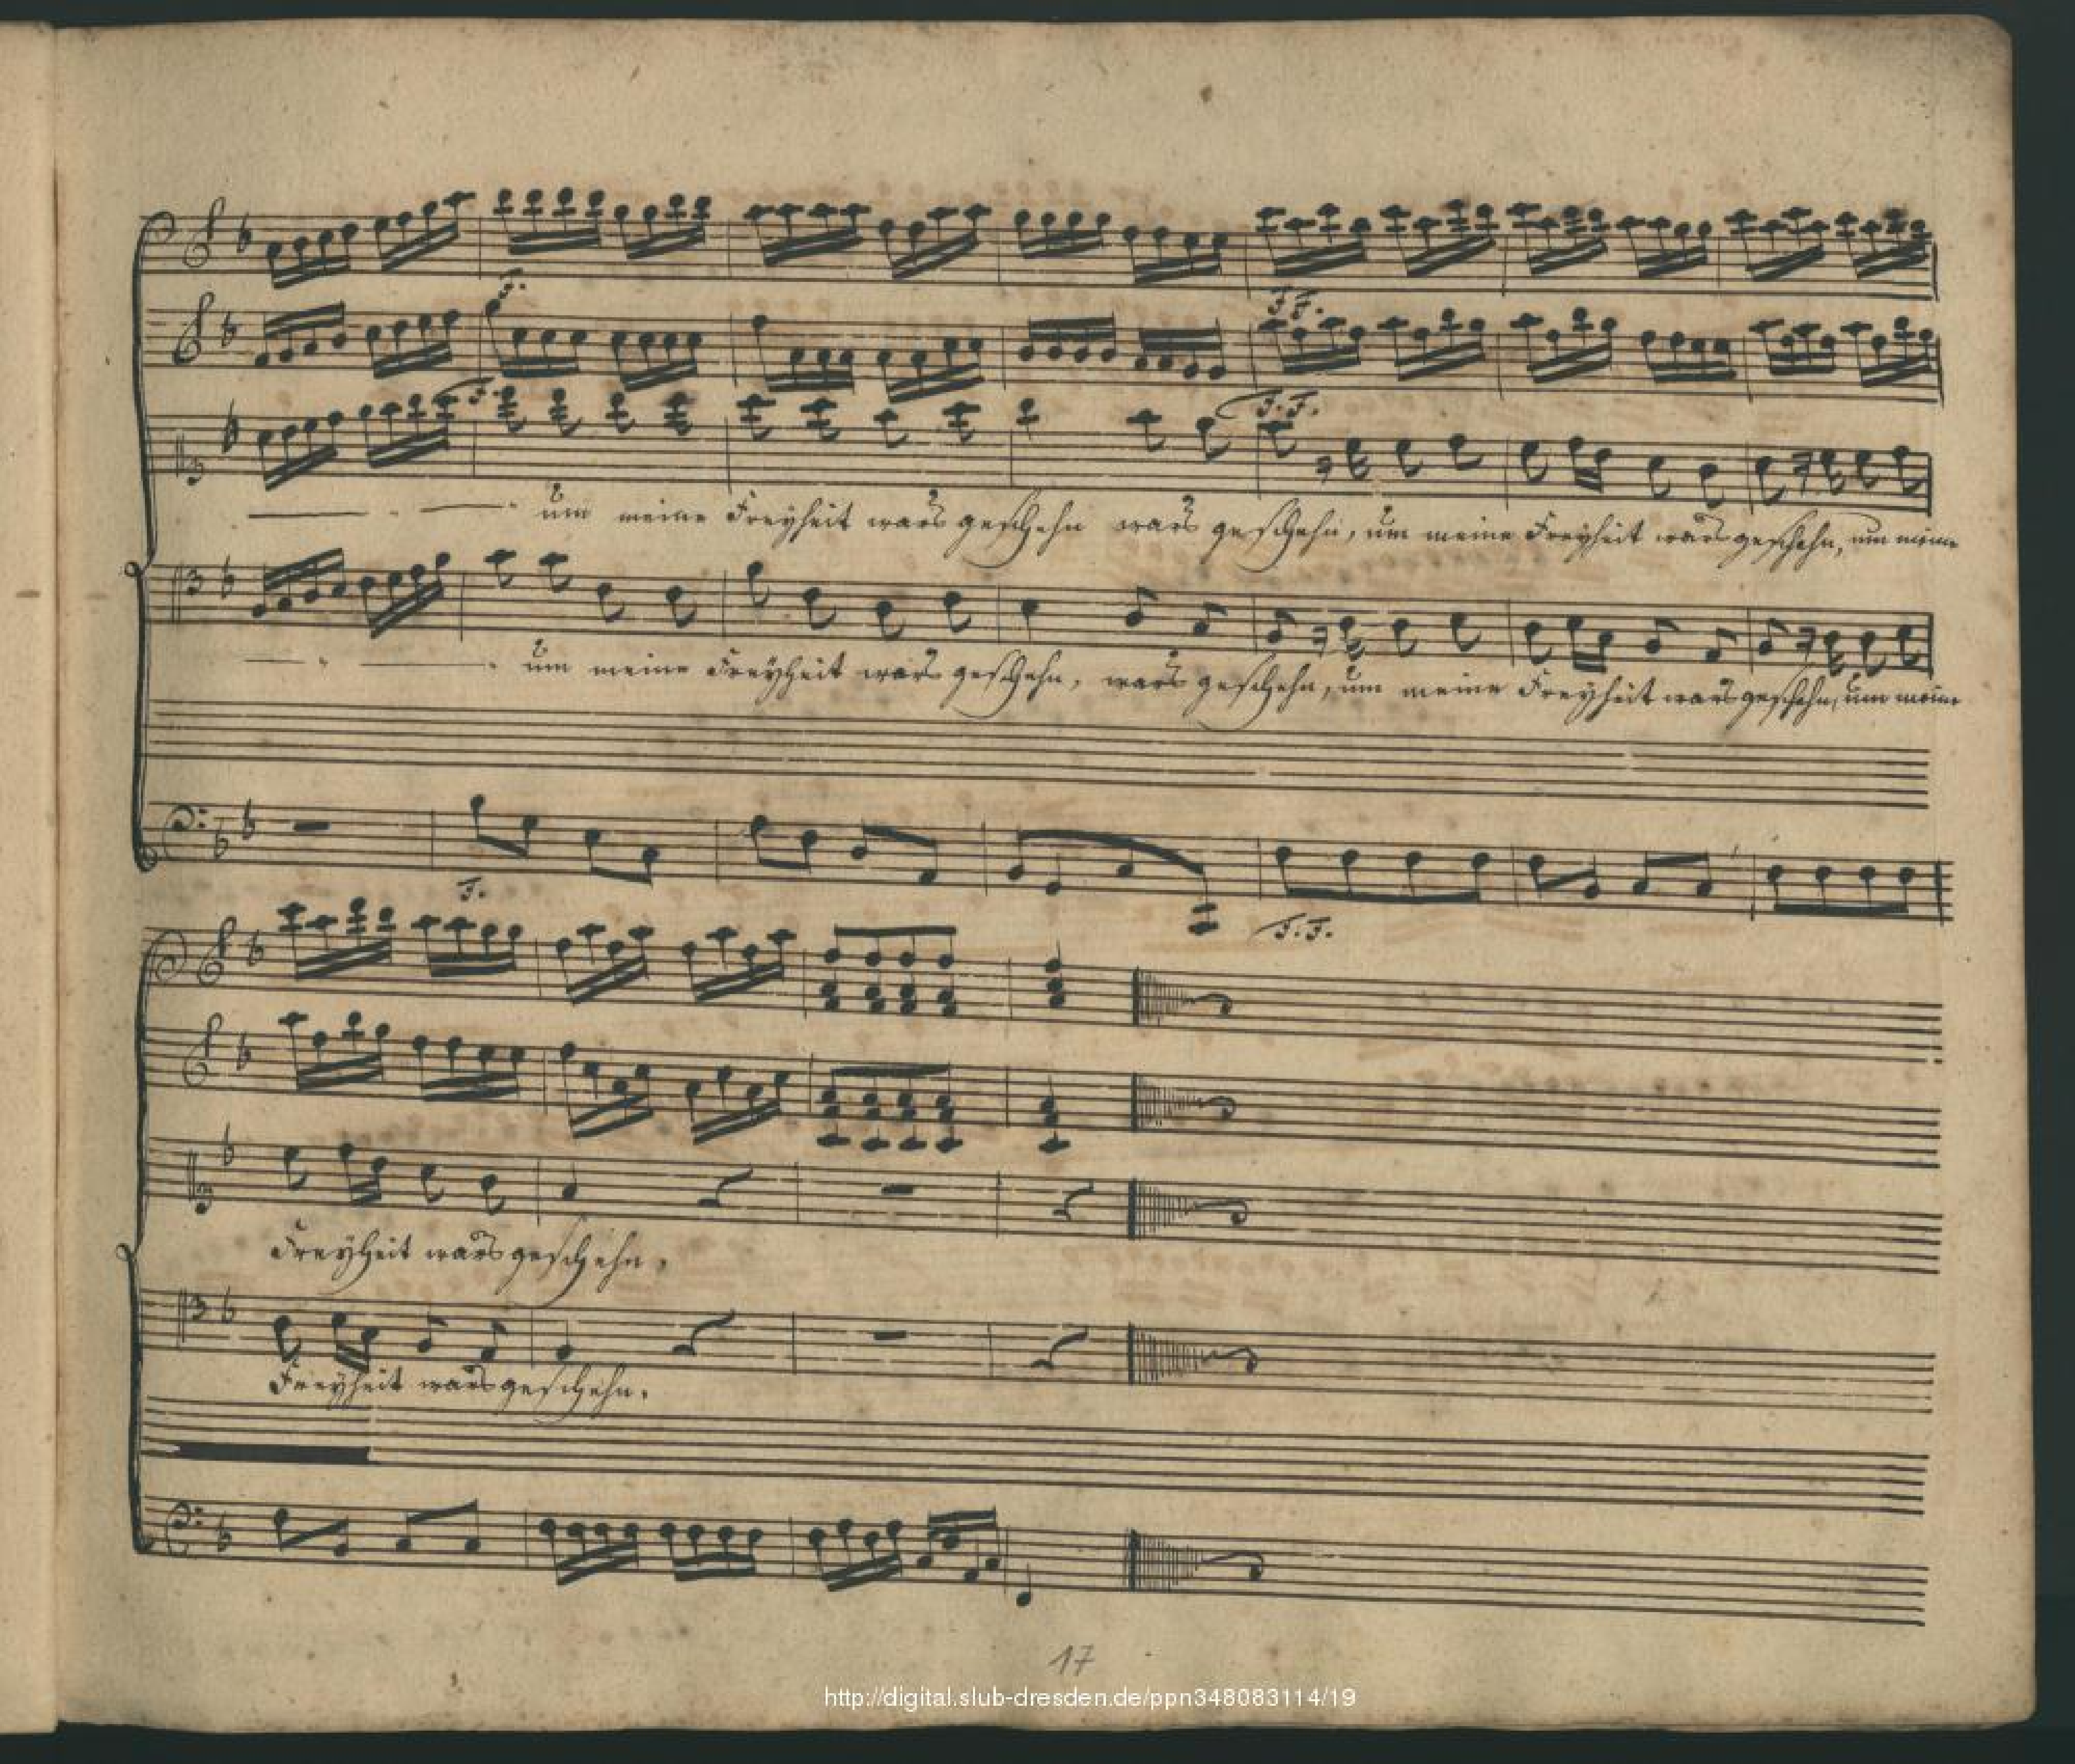 F.
F.F.
F.
F.F.
um meine Freyheit wars geschehn wars geschehn, um meine Freyheit wars geschehn, um meine
um meine Freyheit wars geschehn, wars geschehn, um meine Freyheit wars geschehn, um meine
F.
F.F.
Freyheit wars geschehn,
Freyheit wars geschehn.
17
http://digital.slub-dresden.de/ppn348083114/19